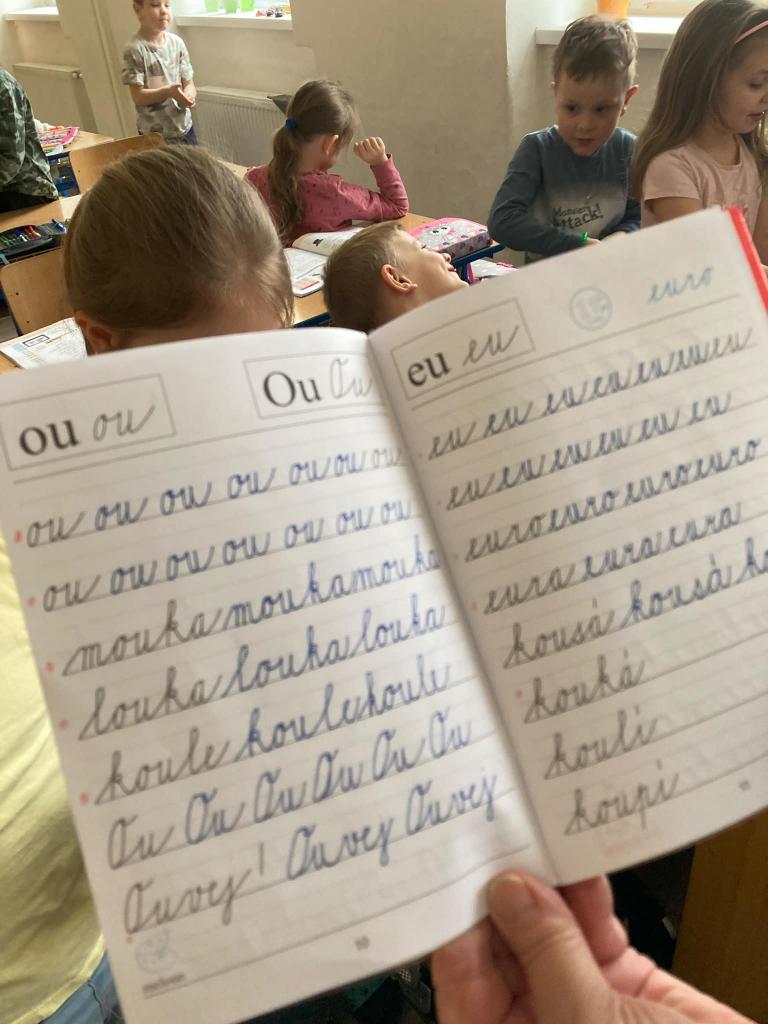 ou ou
Ou Ou
ou ou ou ou ou ou ou
ou ou ou ou ou ou ou
mouka mouka mouka
louka louka louka
koule koule koule
Ou Ou Ou Ou Ou Ou
Ouvej! Ouvej Ouvej
10
eu eu
euro
eu eu eu eu eu eu eu
eu eu eu eu eu eu eu
euro euro euro euro
eura eura eura
kousá kousà
kouká
koulí
koupí
11
Monster
Attack!